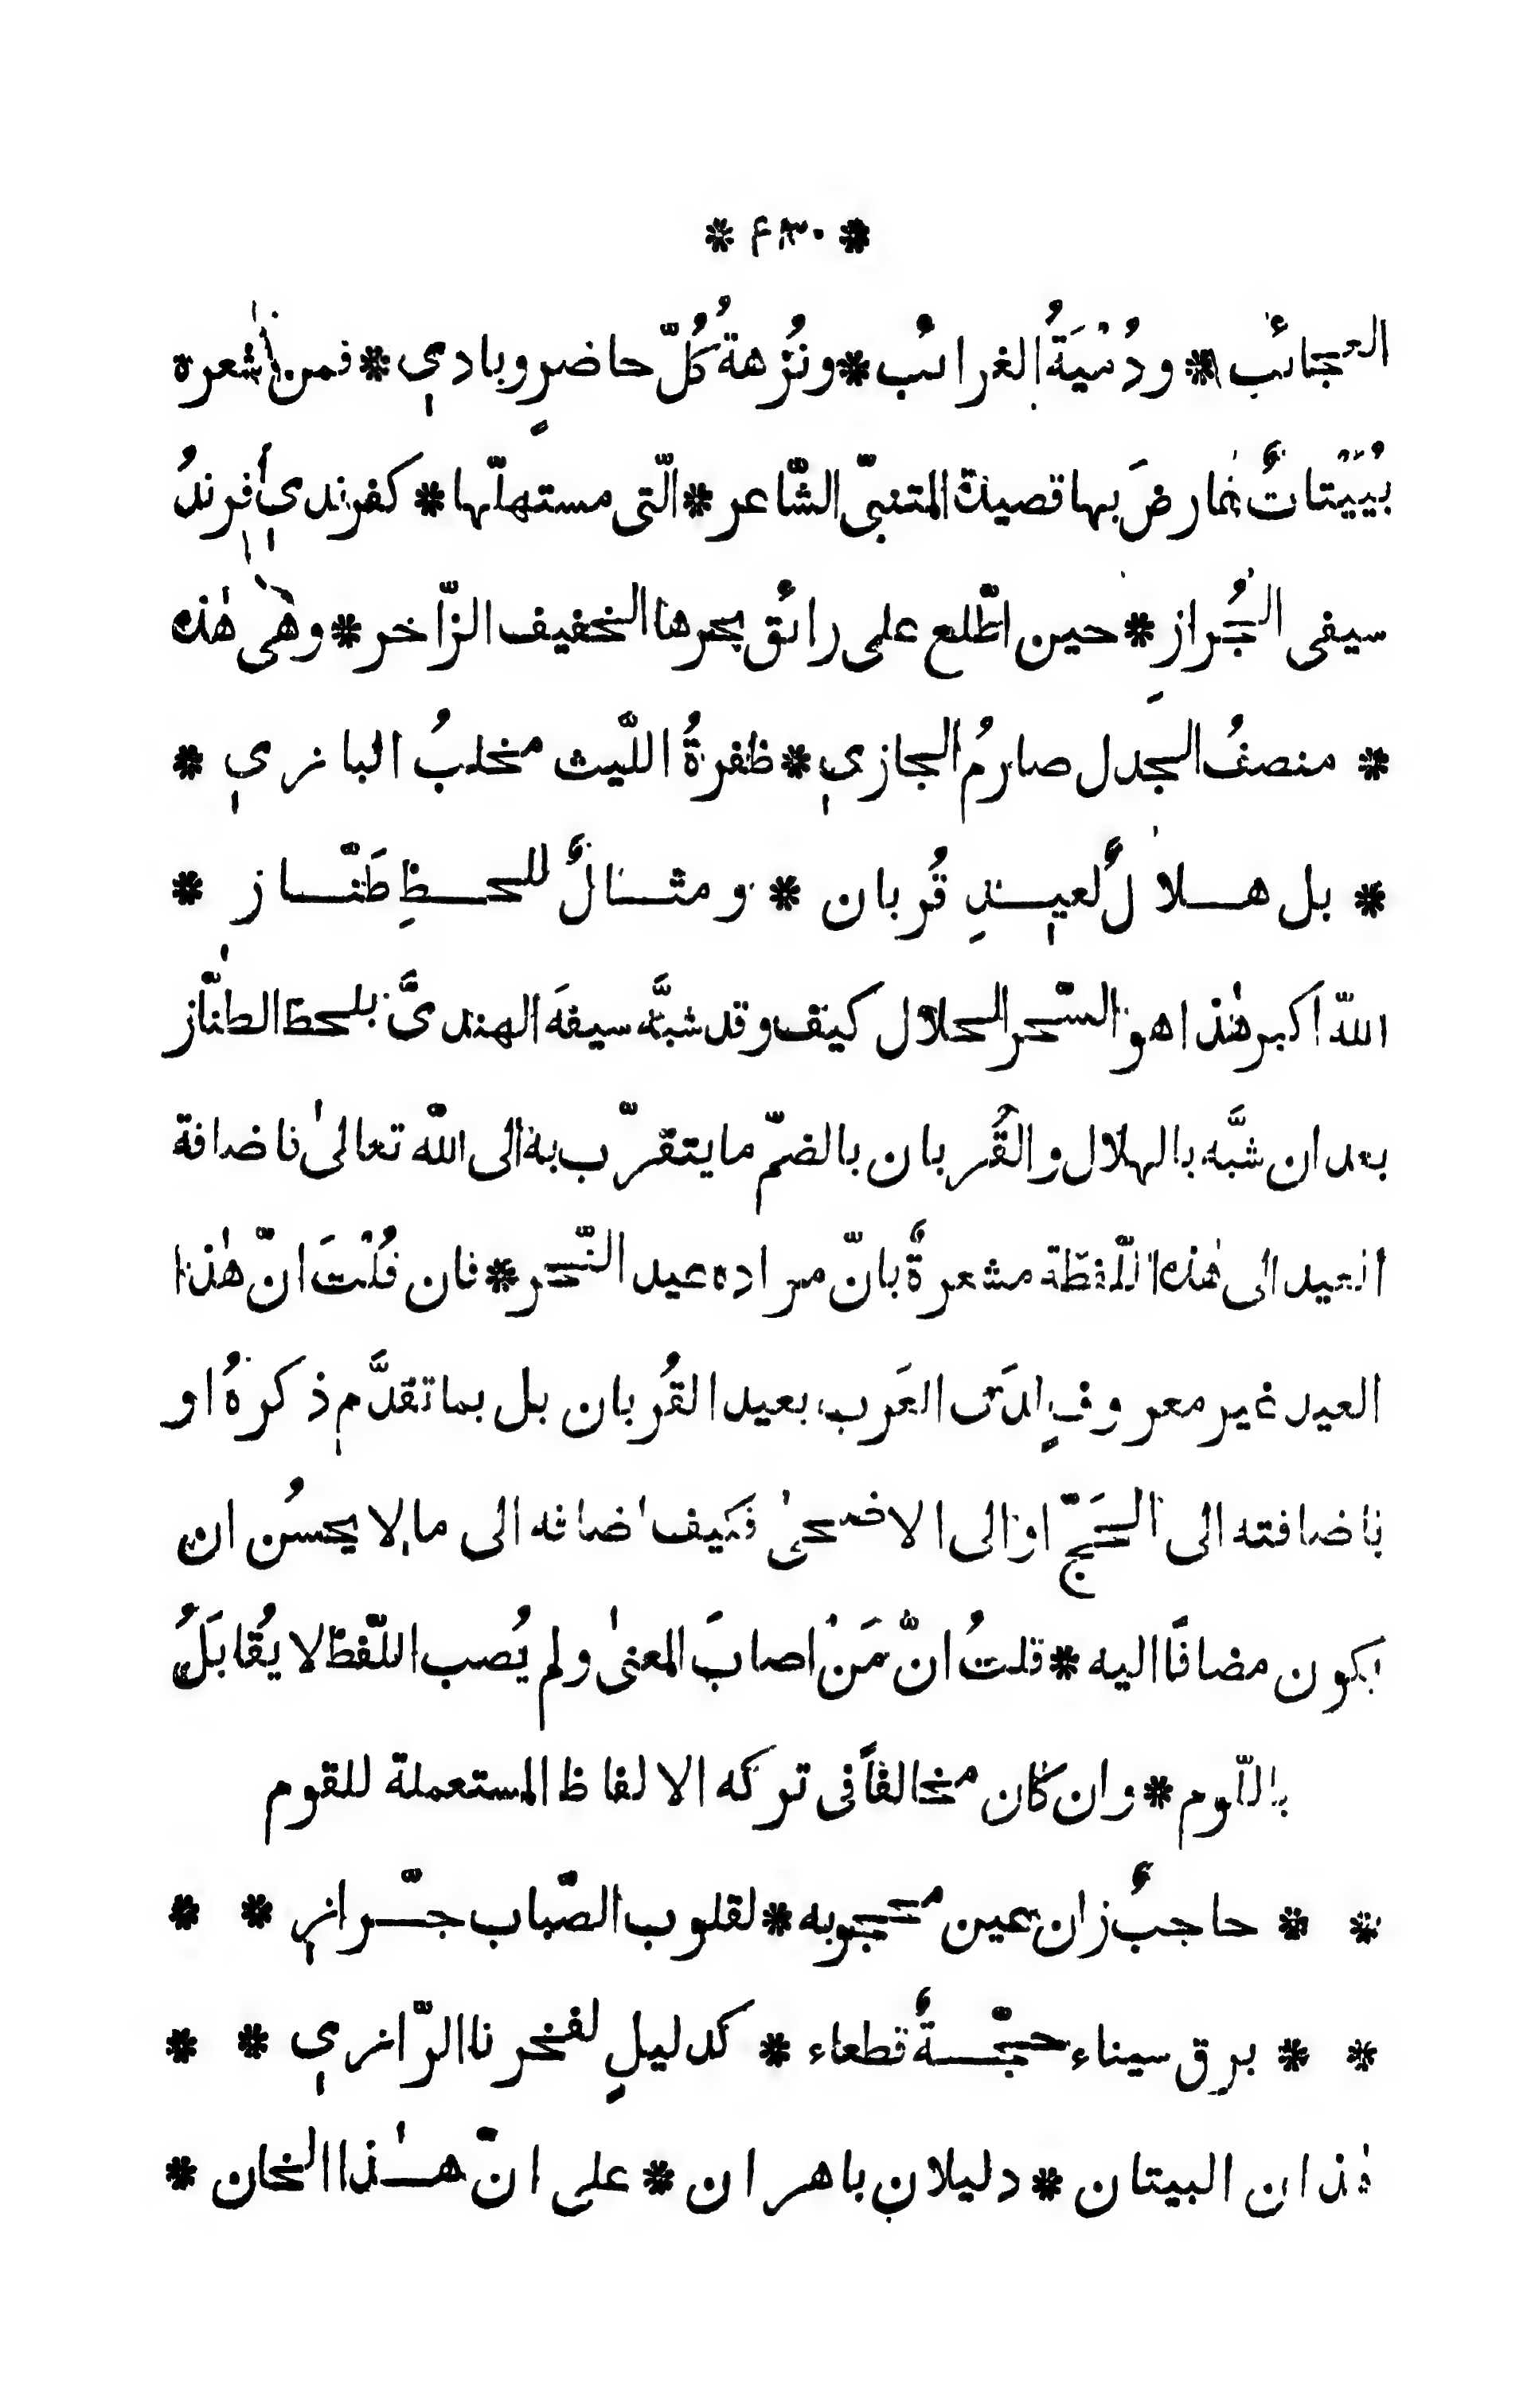 * ۴۳۰ *
العجائب * ودُمْيَةُ الغرائب * ونُزهةُ كُلّ حاضرٍ وبادي * فمن شعره
بُيَيْتاتٌ عارضَ بها قصيدة المتنبّى الشّاعر * الّتى مستهلّها * كفرندى فِرندُ
سيفى الجُرازِ * حين اطّلع على رائق بحرها الخفيف الزّاخر * وهى هٰذه
* منصفُ الجدل صارمُ الجازي * ظفرةُ اللّيث مخلبُ البازي *
* بل هلالٌ لعيدِ قُربان * ومثالٌ للحظِ طَنّاز *
اللّه اكبر هٰذا هو السّحر الحلال كيف وقد شبَّه سيفهَ الهندىَّ بلحظ الطنّاز
بعد ان شبَّه بالهلال والقُربان بالضمّ ما يتقرّب به الى اللّه تعالىٰ فاضافة
العيد الى هٰذه اللّفظة مشعرةٌ بانّ مراده عيد النّحر * فان قُلْتَ انّ هٰذا
العيد غير معروفٍ لدَى العَرب بعيد القُربان بل بما تقدَّم ذكرهُ او
باضافته الى الحَجّ او الى الاضحىٰ فكيف اضافه الى ما لا يحسُن ان
يكون مضافًا اليه * قلتُ انّ مَنْ اصابَ المعنىٰ ولم يُصب اللّفظ لا يُقابَلُ
باللّوم * وان كان مخالفاً فى تركه الالفاظ المستعملة للقوم
* * حاجبٌ زان عين محجوبه * لقلوب الصّباب جرّازِ * *
* * برق سيناء حجّةٌ قطعاء * كدليلٍ لفخرنا الرّازي * *
هٰذان البيتان * دليلان باهران * على انّ هٰذا الخان *